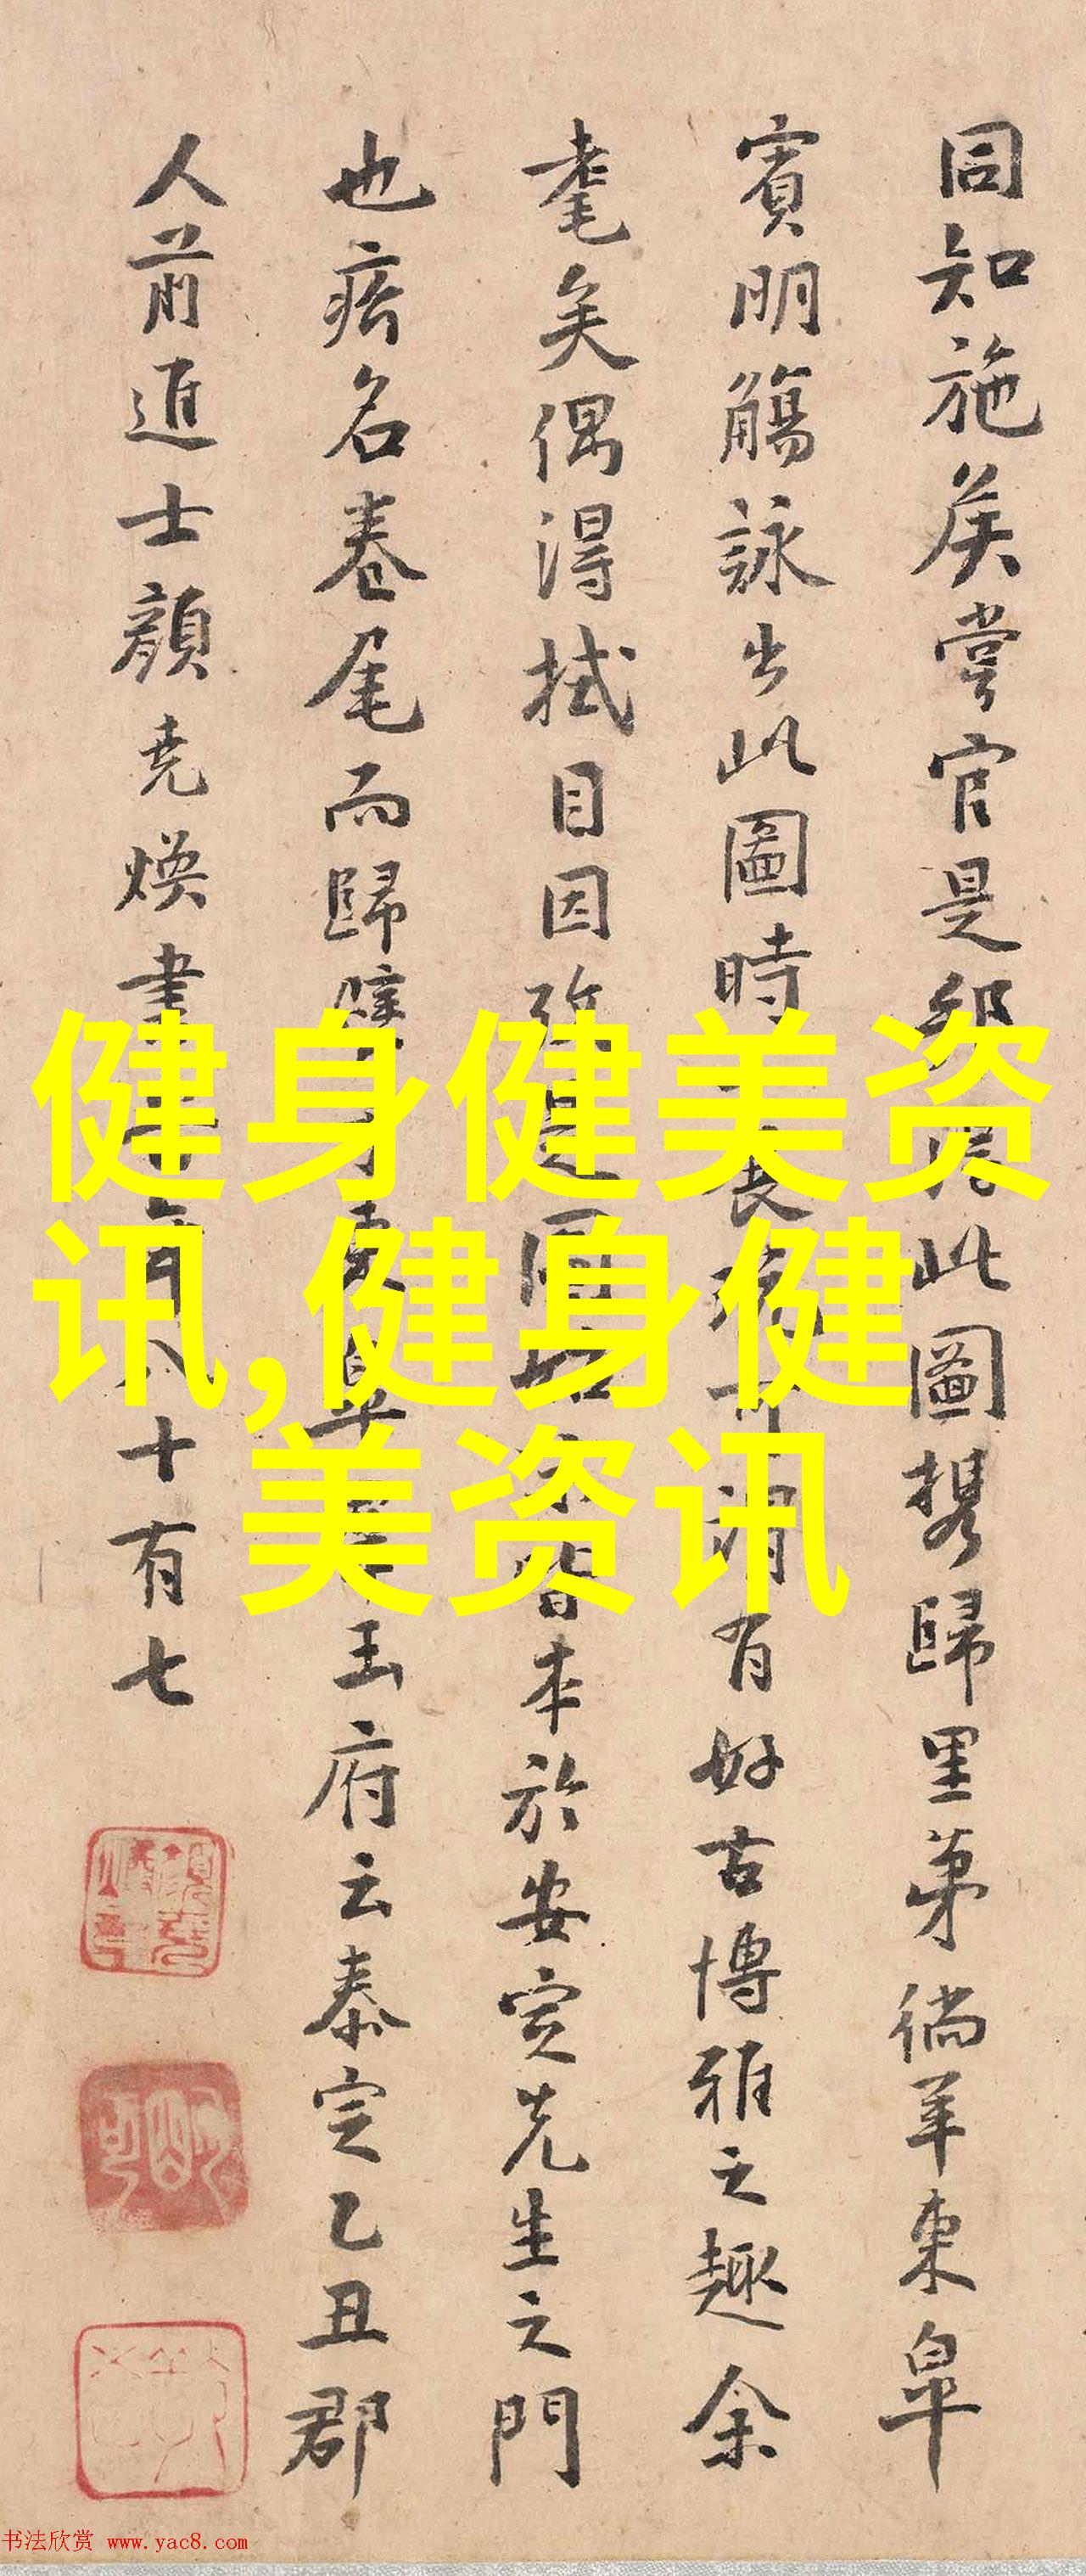 同知施矦嘗官是邦此圖携歸里第徜羊東皐
賓明觴詠出此圖時謂有好古博雅之趣余
耄矣偶得拭目因攷是圖皆本於安定先生之門
也名卷尾而歸東皐玉府云泰定乙丑郡
人前進士顏堯煥書年八十有七
健身健美资
讯,健身健
美资讯
书法欣赏 www.yac8.com